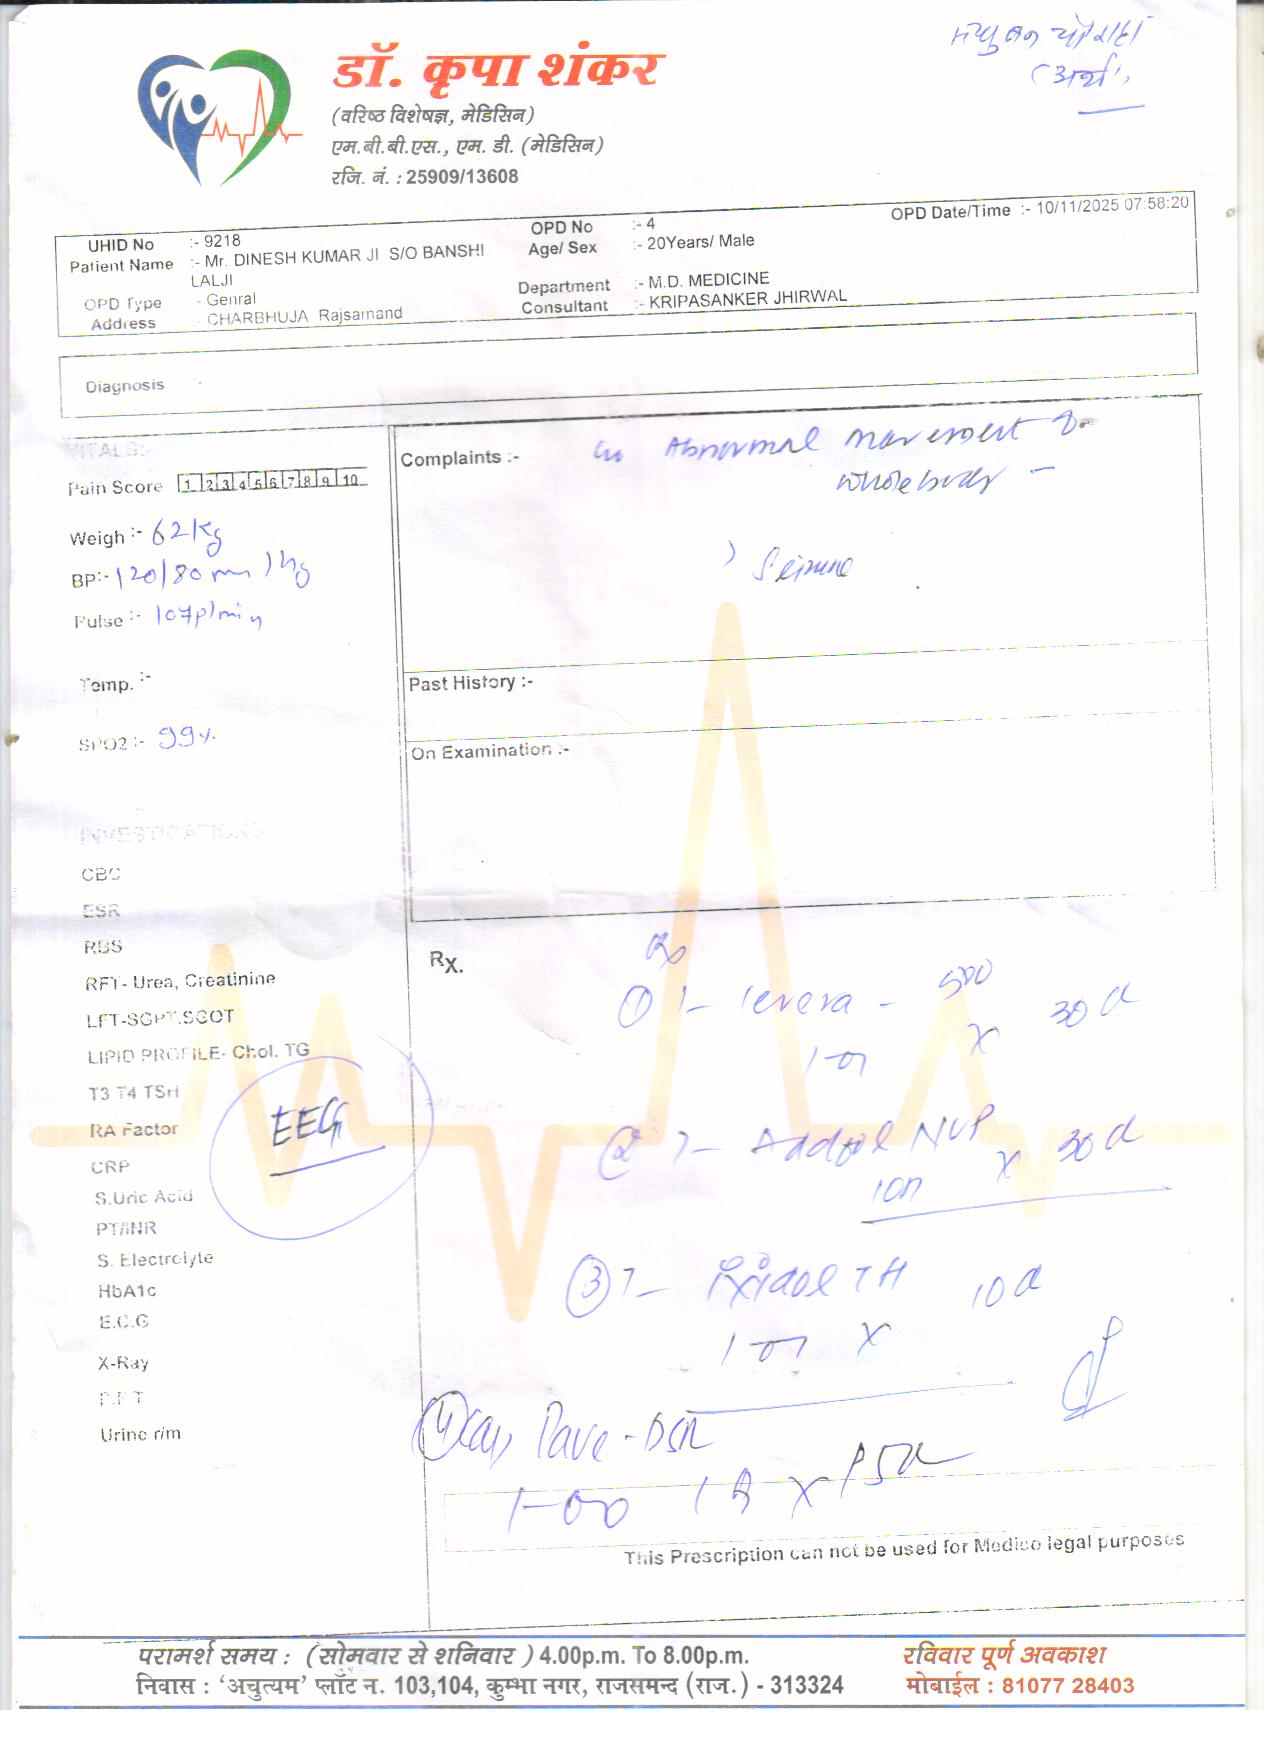 डॉ. कृपा शंकर
(वरिष्ठ विशेषज्ञ, मेडिसिन)
एम.बी.बी.एस., एम. डी. (मेडिसिन)
रजि. नं. : 25909/13608
OPD Date/Time :- 10/11/2025 07:58:20
UHID No :- 9218 OPD No :- 4
Patient Name :- Mr. DINESH KUMAR JI S/O BANSHI LALJI Age/ Sex :- 20Years/ Male
OPD Type - Genral Department :- M.D. MEDICINE
Address - CHARBHUJA Rajsamand Consultant :- KRIPASANKER JHIRWAL
Diagnosis -
VITALS:-
Pain Score 1 2 3 4 5 6 7 8 9 10
Weigh :- 62 Kg
BP:- 120/80 mm/hg
Pulse :- 107p/min
Temp. :-
SPO2 :- 99%
Complaints :- Abnormal movement
whole body -
Seizure
Past History :-
On Examination :-
INVESTIGATIONS
CBC
ESR
RBS
RFT- Urea, Creatinine
LFT-SGPT.SGOT
LIPID PROFILE- Chol. TG
T3 T4 TSH
RA Factor
CRP
S.Uric Acid
PT/INR
S. Electrolyte
HbA1c
E.C.G
X-Ray
Urine r/m
EEG
Rx.
Rx
① T- levera - 500
1-01 x 30 d
② T- NVP
10n x 30 d
③ T- TH
1-01 x 10 d
④ Cap Pave-DSR
1-00 x 15d
This Prescription can not be used for Medico legal purposes
परामर्श समय : (सोमवार से शनिवार ) 4.00p.m. To 8.00p.m. रविवार पूर्ण अवकाश
निवास : ‘अचुत्यम’ प्लॉट न. 103,104, कुम्भा नगर, राजसमन्द (राज.) - 313324 मोबाईल : 81077 28403